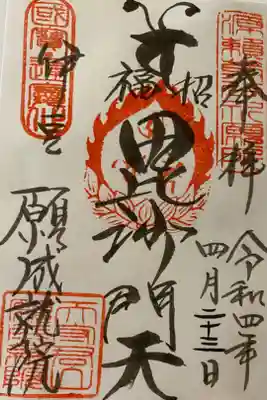 奉拝
令和四年
四月二十三日
招福
毘沙門天
國寶運慶
伊豆
願成就院